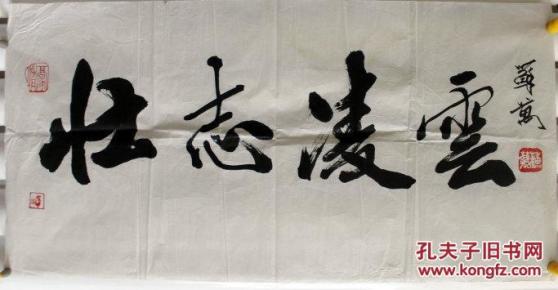 壮志凌雲
孔夫子旧书网
www.kongfz.com